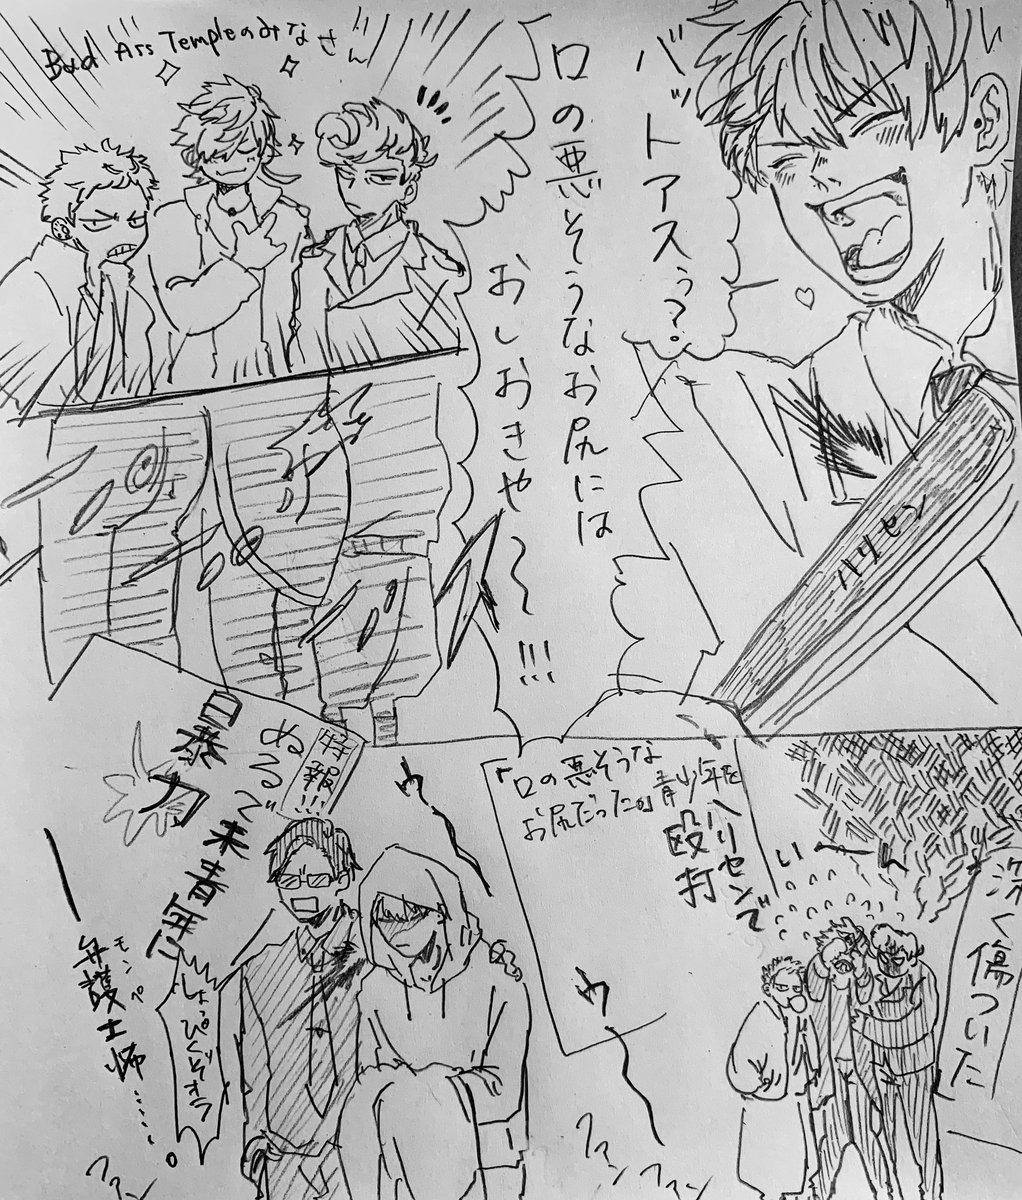 バットアスぅ?
口の悪そうなお尻には
おしおきや〜〜!!!
ハリセン
Bad Ass Templeのみなさん
深く傷ついた
「口の悪そうな
お尻だった。」青少年を
ハリセンで
殴打
特報!!!
ぬるで
青年に
暴力
モンペ
弁護士怖……。
しょっぴくぞオラ
ウ
ウ
ファンファン
ファン